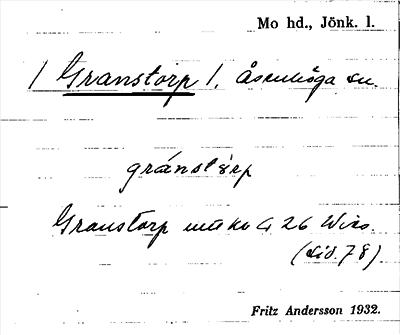 Mo hd., Jönk. l.
/ Granstorp /, Åsenhöga sn.
gránstòrp
Granstorp
(Lid. 78).
Fritz Andersson 1932.